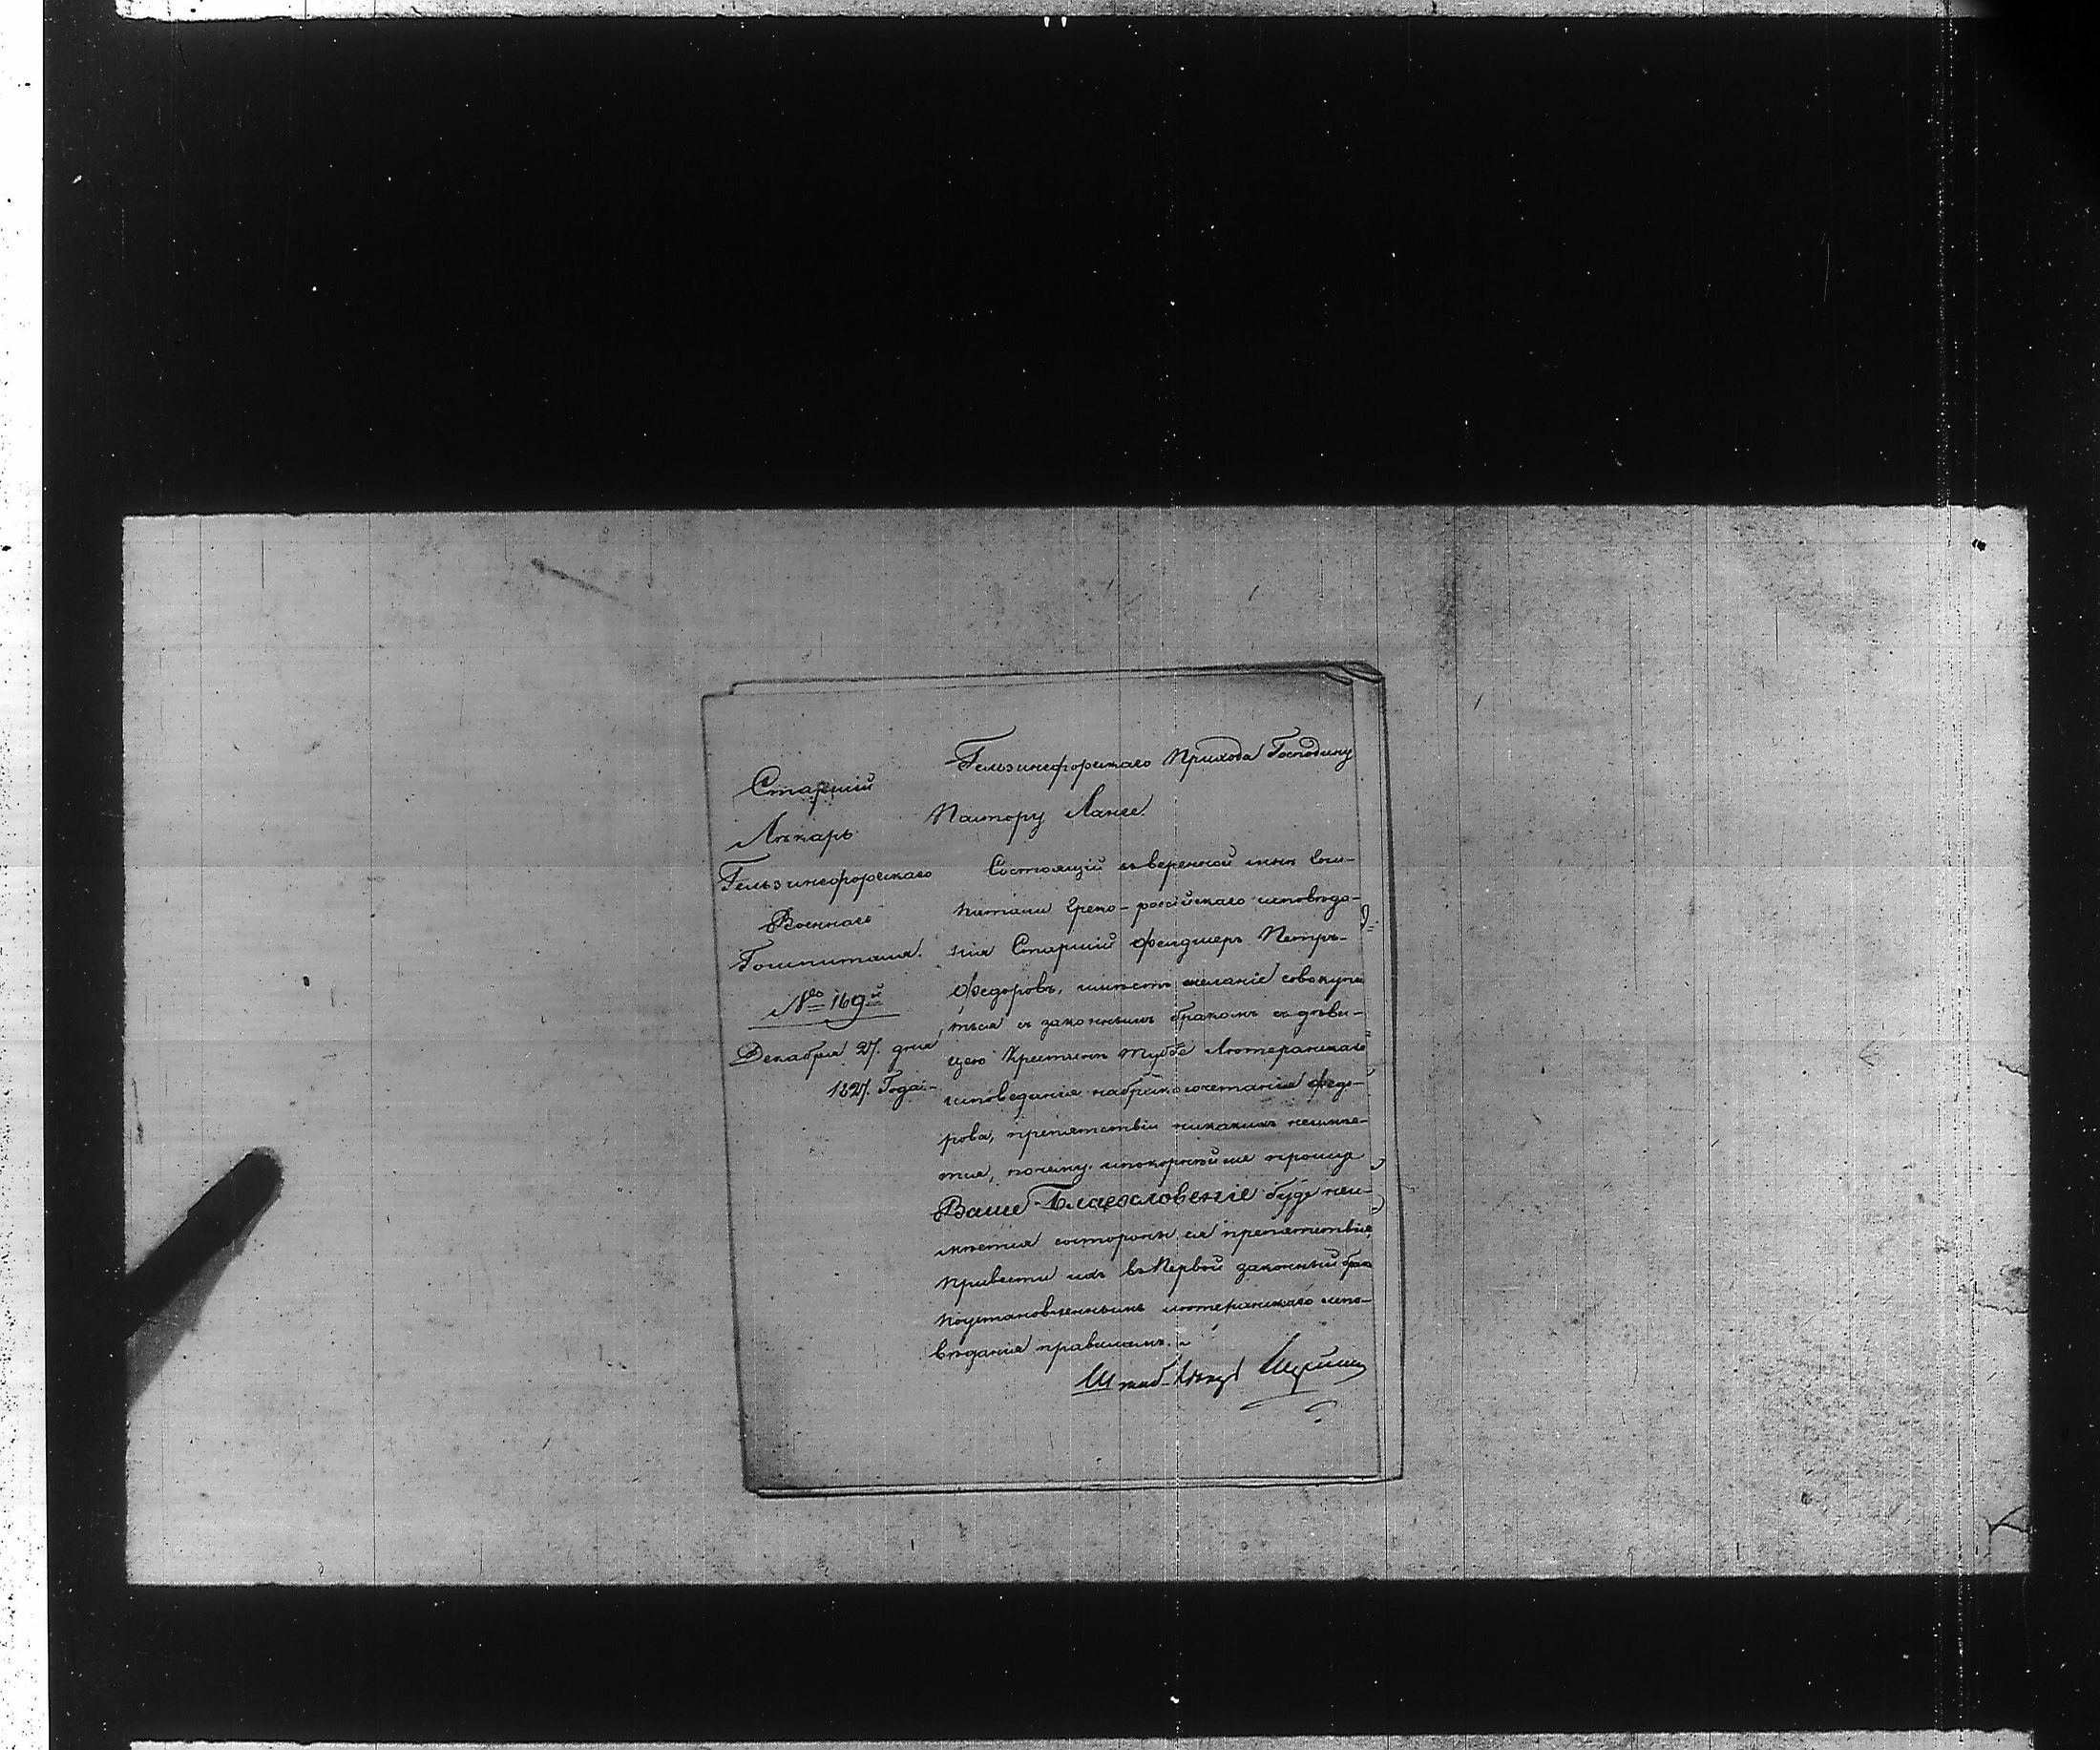 Старшій
Лѣкарь
Гельзингфорскаго
Военнаго
Гошпиталя.
№ 169й
Декабря 27. дня
1827. Года.
Гельзингфорскаго Прихода Господину
Пастору Ланге.
Состоящій ввѣренной мнѣ Гош-
питали Греко-россійскаго исповѣда-
нія Старшій Фелдшеръ Петръ-
Федоровъ, имѣетъ желаніе совокупи
ться съ законнымъ бракомъ съ дѣви-
цею Крестиною Лютеранскаго
исповеданія набракосочетаніе Федо-
рова, препятствіи никакихъ неимѣе-
тся, почему. ипокорнѣйше прошу
Ваше Благословеніе буде неи-
мѣется состороны ея препятствія,
привести ихъ въ Первой законный брак
поустановленнымъ лютеранскаго испо-
вѣданія правиламъ.
Штаб-Лѣкарь